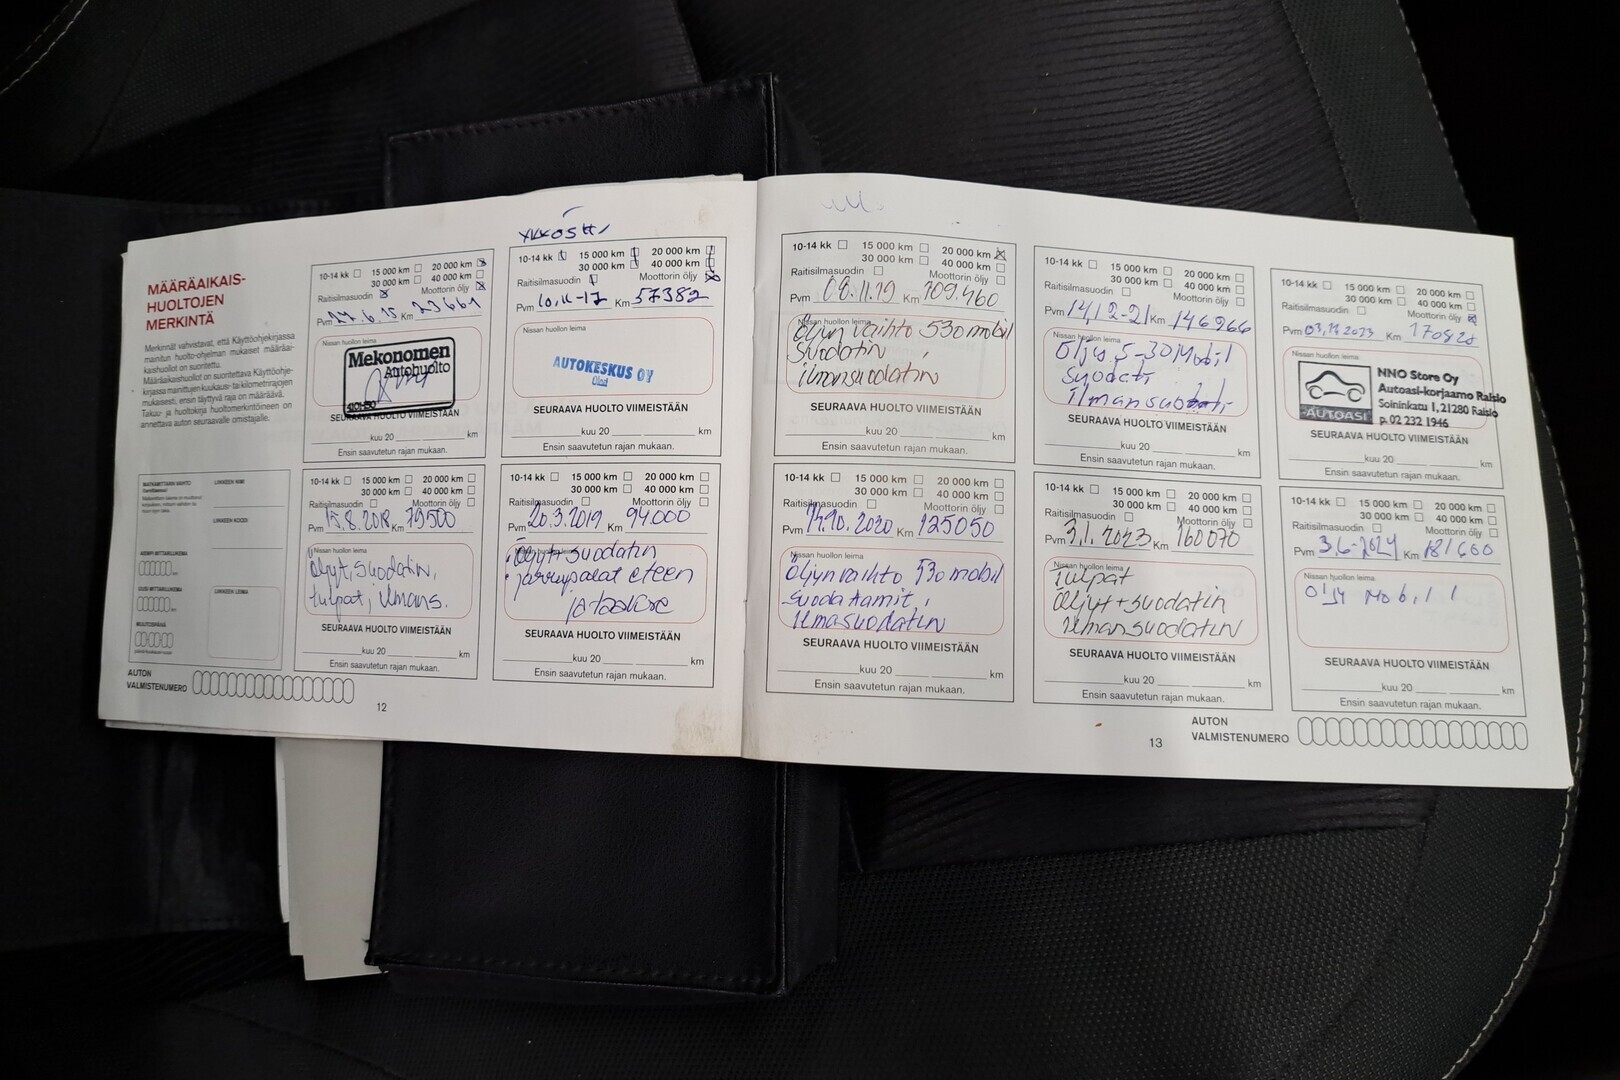 MÄÄRÄAIKAIS-
HUOLTOJEN
MERKINTÄ
Merkinnät vahvistavat, että Käyttöohjekirjassa
mainitun huolto-ohjelman mukaiset määräai-
kaishuollot on suoritettu.
Määräaikaishuollot on suoritettava Käyttöohje-
kirjassa mainittujen kuukausi- tai kilometrirajojen
mukaisesti, ensin täyttyvä raja on määräävä.
Takuu- ja huoltokirja huoltomerkintöineen on
annettava auton seuraavalle omistajalle.
10-14 kk 15 000 km 20 000 km
30 000 km 40 000 km
Raitisilmasuodin Moottorin öljy
Pvm 27.6.15 Km 23661
Nissan huollon leima
Mekonomen
Autohuolto
SEURAAVA HUOLTO VIIMEISTÄÄN
kuu 20 km
Ensin saavutetun rajan mukaan.
10-14 kk 15 000 km 20 000 km
30 000 km 40 000 km
Raitisilmasuodin Moottorin öljy
Pvm 10.11-17 Km 57382
Nissan huollon leima
AUTOKESKUS OY
SEURAAVA HUOLTO VIIMEISTÄÄN
kuu 20 km
Ensin saavutetun rajan mukaan.
MATKAMITTARIN VAIHTO
LIIKKEEN NIMI
LIIKKEEN KOODI
AIEMPI MITTARILUKEMA
UUSI MITTARILUKEMA
MUUTOSPÄIVÄ
LIIKKEEN LEIMA
10-14 kk 15 000 km 20 000 km
30 000 km 40 000 km
Raitisilmasuodin Moottorin öljy
Pvm 15.8.2018 Km 79500
Nissan huollon leima
Öljyt, suodatin,
tulpat, ilmans.
SEURAAVA HUOLTO VIIMEISTÄÄN
kuu 20 km
Ensin saavutetun rajan mukaan.
10-14 kk 15 000 km 20 000 km
30 000 km 40 000 km
Raitisilmasuodin Moottorin öljy
Pvm 20.3.2019 Km 94000
Nissan huollon leima
öljyt + suodatin
jarrupalat eteen
ja taakse
SEURAAVA HUOLTO VIIMEISTÄÄN
kuu 20 km
Ensin saavutetun rajan mukaan.
AUTON
VALMISTENUMERO
12
10-14 kk 15 000 km 20 000 km
30 000 km 40 000 km
Raitisilmasuodin Moottorin öljy
Pvm 08.11.19 Km 109.460
Nissan huollon leima
öljyn vaihto 530 mobil
suodatin
ilmansuodatin
SEURAAVA HUOLTO VIIMEISTÄÄN
kuu 20 km
Ensin saavutetun rajan mukaan.
10-14 kk 15 000 km 20 000 km
30 000 km 40 000 km
Raitisilmasuodin Moottorin öljy
Pvm 14/12-21 Km 146266
Nissan huollon leima
Öljy 5-30 Mobil
suodati
ilmansuodati
SEURAAVA HUOLTO VIIMEISTÄÄN
kuu 20 km
Ensin saavutetun rajan mukaan.
10-14 kk 15 000 km 20 000 km
30 000 km 40 000 km
Raitisilmasuodin Moottorin öljy
Pvm Km 170828
Nissan huollon leima
AUTOASI
NNO Store Oy
Autoasi-korjaamo Raisio
Soininkatu 1, 21280 Raisio
p. 02 232 1946
SEURAAVA HUOLTO VIIMEISTÄÄN
kuu 20 km
Ensin saavutetun rajan mukaan.
10-14 kk 15 000 km 20 000 km
30 000 km 40 000 km
Raitisilmasuodin Moottorin öljy
Pvm Km 125050
Nissan huollon leima
Öljyn vaihto 530 mobil
suodattamit,
ilmasuodatin
SEURAAVA HUOLTO VIIMEISTÄÄN
kuu 20 km
Ensin saavutetun rajan mukaan.
10-14 kk 15 000 km 20 000 km
30 000 km 40 000 km
Raitisilmasuodin Moottorin öljy
Pvm 3,1.2023 Km 160070
Nissan huollon leima
Tulpat
Öljyt + suodatin
ilmansuodatin
SEURAAVA HUOLTO VIIMEISTÄÄN
kuu 20 km
Ensin saavutetun rajan mukaan.
10-14 kk 15 000 km 20 000 km
30 000 km 40 000 km
Raitisilmasuodin Moottorin öljy
Pvm 3,6-2024 Km 181600
Nissan huollon leima
Öljy Mobil 1
SEURAAVA HUOLTO VIIMEISTÄÄN
kuu 20 km
Ensin saavutetun rajan mukaan.
AUTON
VALMISTENUMERO
13